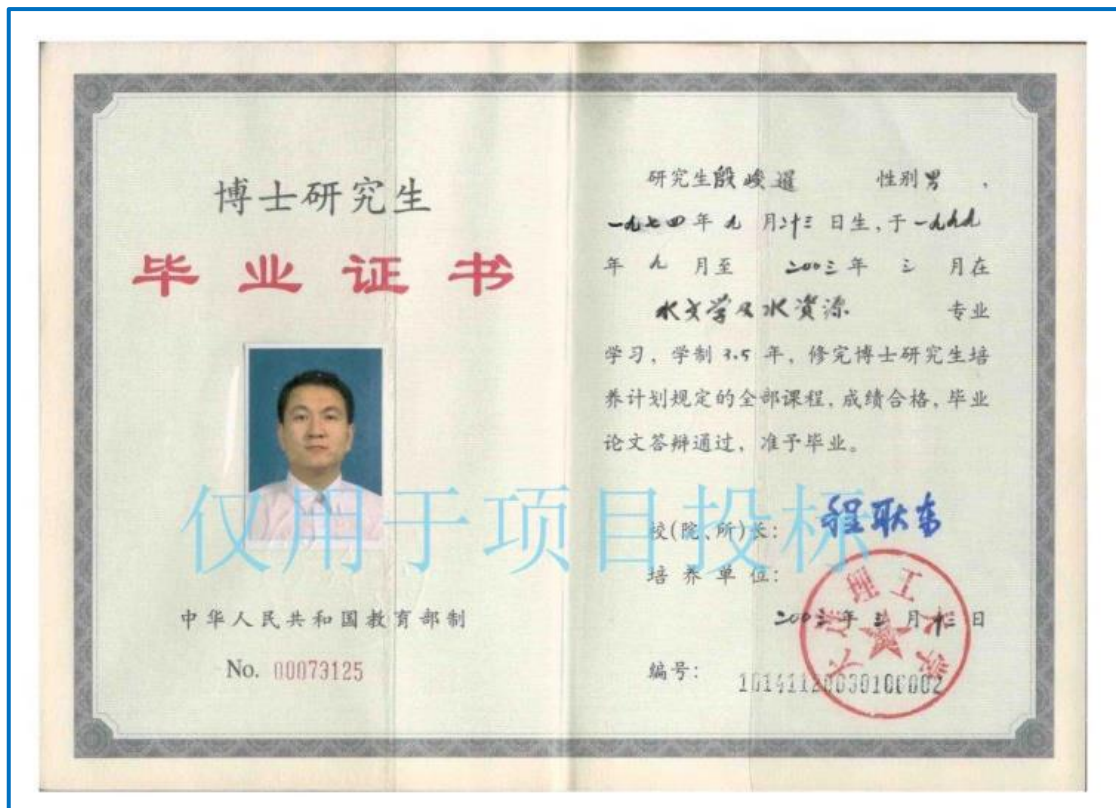 博士研究生
毕业证书
中华人民共和国教育部制
No. 00073125
研究生殷峻暹 性别男,
一九七四年九月廿三日生,于一九九九
年九月至 二00三年 三 月在
水文学及水资源 专业
学习,学制3.5年,修完博士研究生培
养计划规定的全部课程,成绩合格,毕业
论文答辩通过,准予毕业。
校(院、所)长: 程耿东
培养单位:
大连理工大学
二00三年三月十三日
编号: 10141120030100002
仅用于项目投标